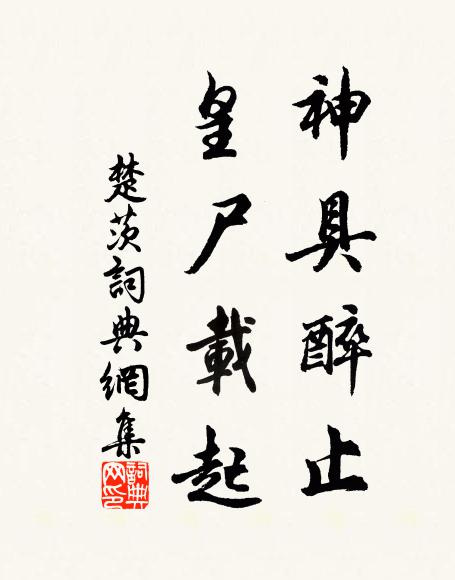 神具醉止
皇尸載起
楚茨詞典網集
詞典网印